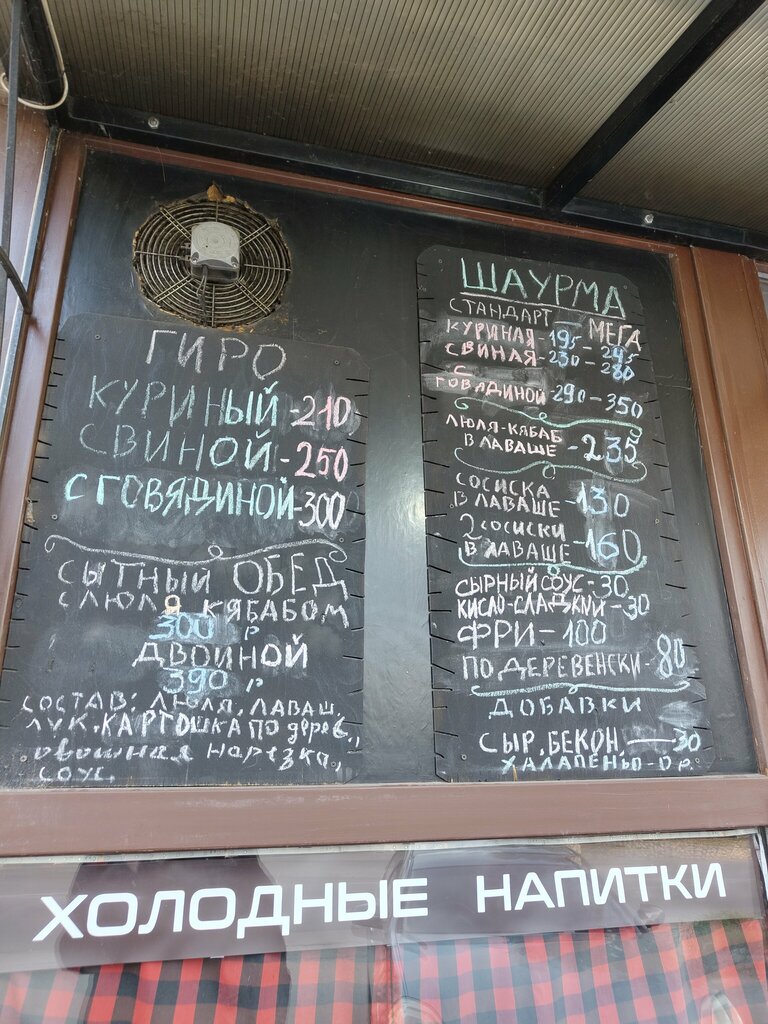 ГИРО
КУРИНЫЙ -210
СВИНОЙ -250
С ГОВЯДИНОЙ -300
СЫТНЫЙ ОБЕД
С ЛЮЛЯ КЯБАБОМ
300 р
ДВОЙНОЙ
390 р
СОСТАВ: ЛЮЛЯ, ЛАВАШ,
ЛУК, КАРТОШКА ПО дерев.,
овощная нарезка,
СОУС.
ШАУРМА
СТАНДАРТ - МЕГА
КУРИНАЯ -195 - 245
СВИНАЯ -230 - 280
С
ГОВЯДИНОЙ -290 - 350
ЛЮЛЯ-КЯБАБ
В ЛАВАШЕ - 235
СОСИСКА
В ЛАВАШЕ -130
2 СОСИСКИ
В ЛАВАШЕ -160
СЫРНЫЙ СОУС - 30
КИСЛО-СЛАДКИЙ - 30
ФРИ - 100
ПО ДЕРЕВЕНСКИ - 80
ДОБАВКИ
СЫР, БЕКОН, — 30
ХАЛАПЕНЬО - 0 р.
ХОЛОДНЫЕ НАПИТКИ